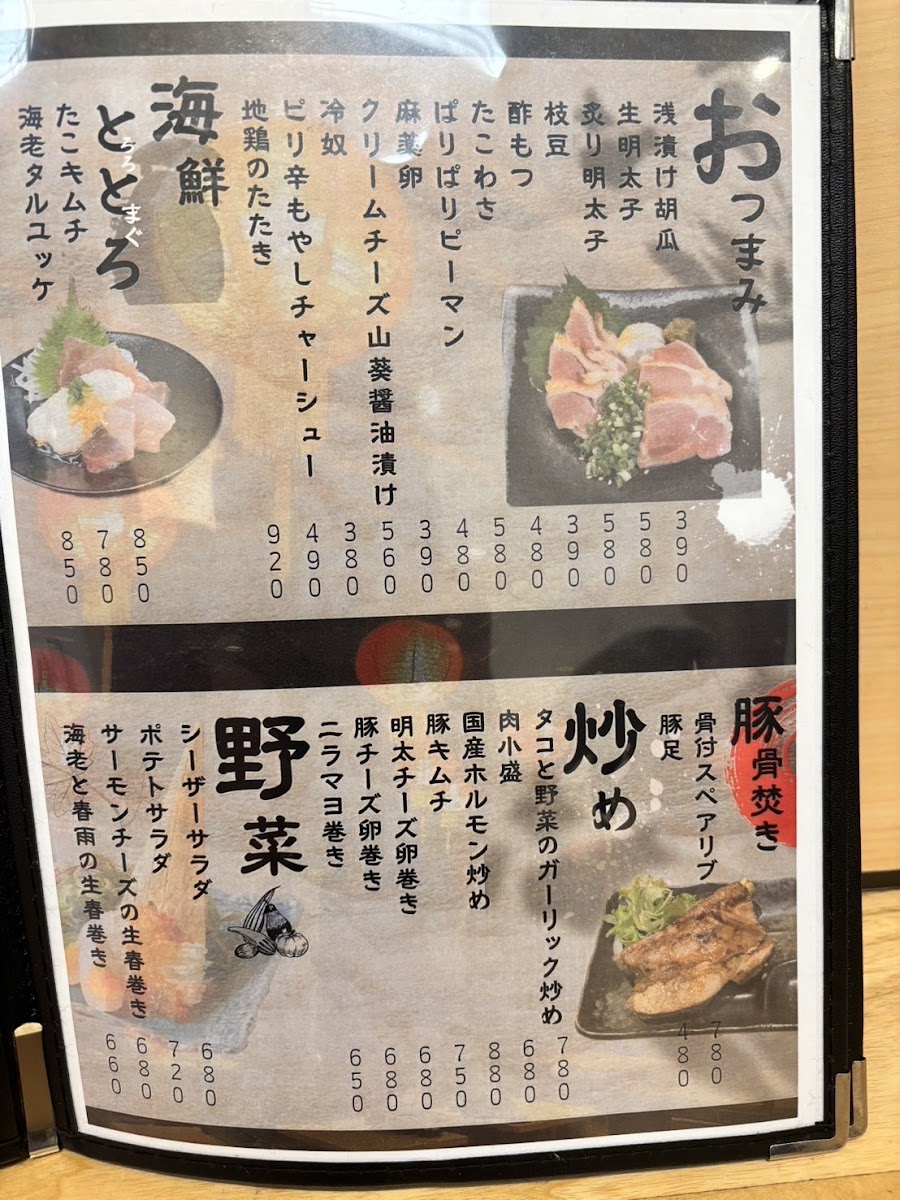 おつまみ
浅漬け胡瓜 390
生明太子 580
炙り明太子 580
枝豆 390
酢もつ 480
たこわさ 580
ぱりぱりピーマン 480
麻薬卵 390
クリームチーズ山葵醤油漬け 560
冷奴 380
ピリ辛もやしチャーシュー 490
地鶏のたたき 920
海鮮
ととろ 850
たこキムチ 780
海老タルユッケ 850
豚骨焚き
骨付スペアリブ 780
豚足 480
炒め
タコと野菜のガーリック炒め 780
肉小盛 680
国産ホルモン炒め 880
豚キムチ 750
明太チーズ卵巻き 680
豚チーズ卵巻き 680
ニラマヨ巻き 650
野菜
シーザーサラダ 680
ポテトサラダ 720
サーモンチーズの生春巻き 680
海老と春雨の生春巻き 660